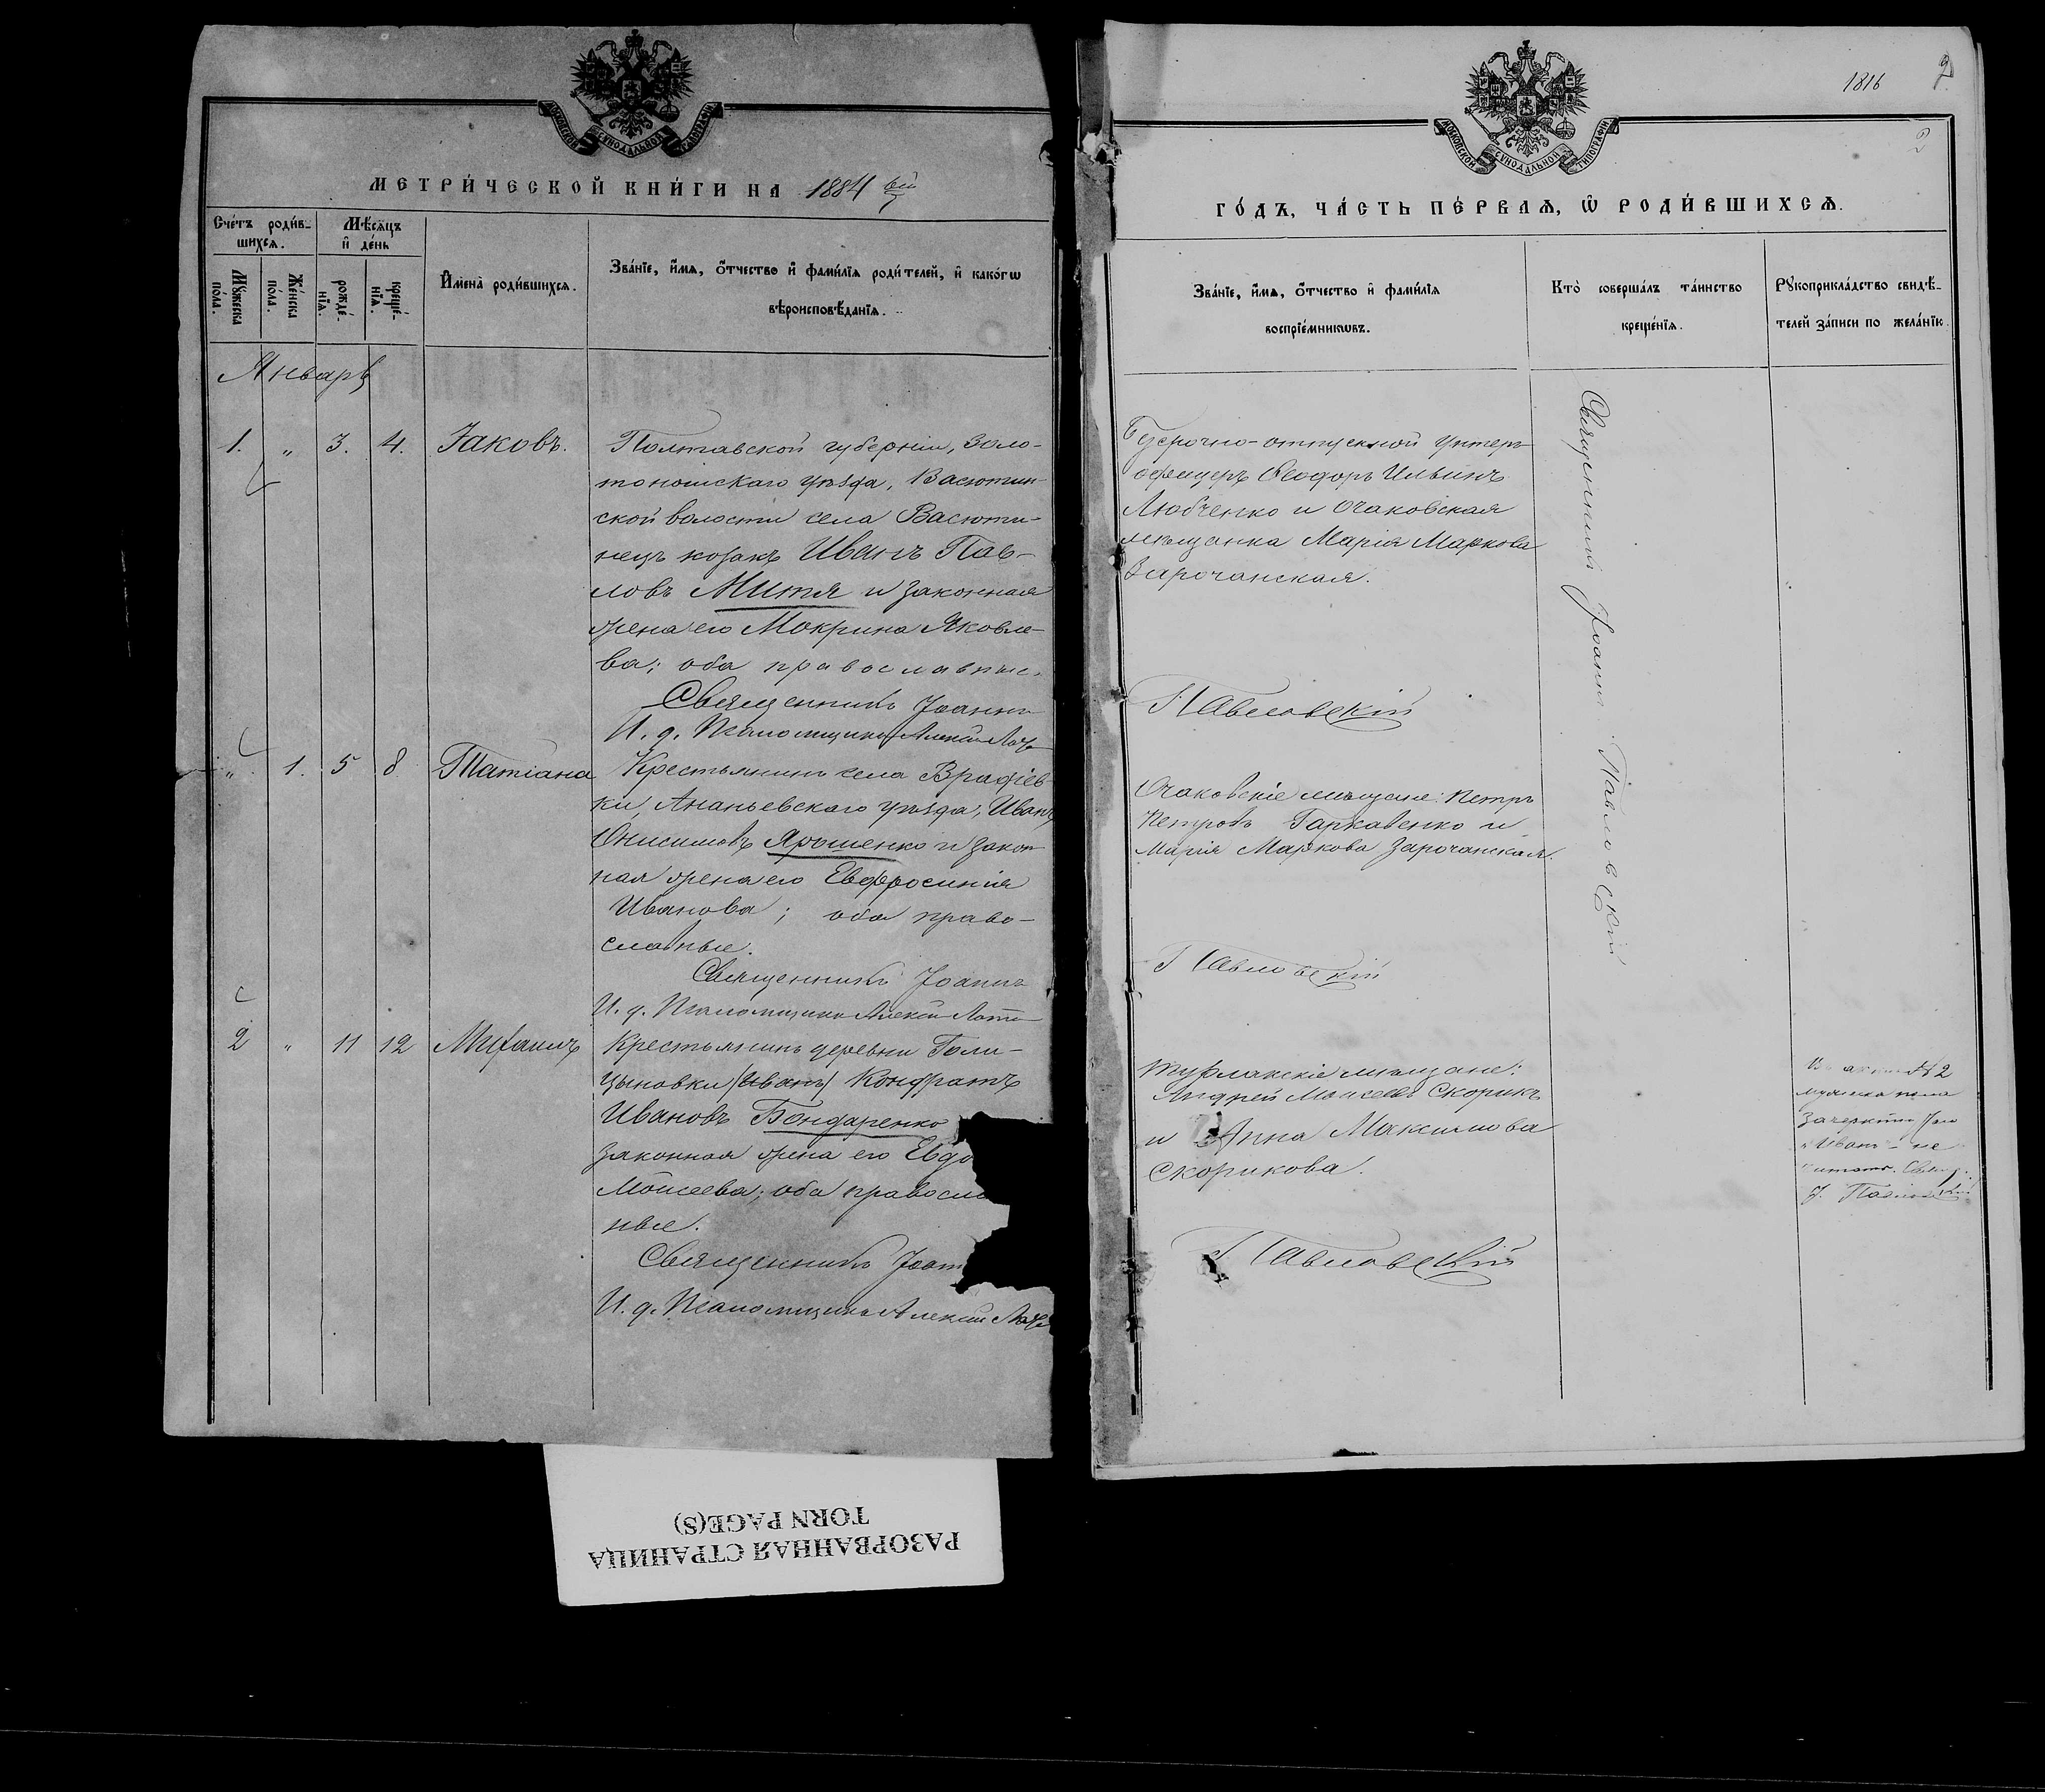 МОСКОВСКОЙ СѴНОДАЛЬНОЙ ТИПОГРАФІИ
МЕТРИ́ЧЕСКОЙ КНИ́ГИ НА 1884 ый
Сче́тъ роди́в-
шихсѧ.
Мꙋ́жеска
по́ла.
Же́нска
по́ла.
Мѣ́сѧцъ
и҆ де́нь
рожде́-
нїѧ.
креще́-
нїѧ.
И҆мена̀ роди́вшихсѧ.
Зва́нїе, и҆́мѧ, ѻ҆́тчество и҆ фами́лїѧ роди́телей, и҆ како́гѡ
вѣроисповѣ́данїѧ.
Январь
1. " 3. 4. Іаковъ.
Полтавской губерніи, Золо-
тоношскаго уѣзда, Васютин-
ской волости села Васюти-
нецъ козакъ Иванъ Пав-
ловъ Митя и законная
жена его Мокрина Яковле-
ва; оба православные.
Священникъ Іоаннъ
И. д. Псаломщика Алексій
" 1. 5 8 Татіана
Крестьянинъ села Врадіев-
ки, Ананьевскаго уѣзда, Иванъ
Онисимовъ Ярошенко и закон
ная жена его Евфросинія
Иванова; оба право-
славные.
Священникъ Іоаннъ
И. д. Псаломщика Алексій
2 " 11 12 Михаилъ
Крестьянинъ деревни Голи-
цыновки (Иванъ) Кондратъ
Ивановъ Бондаренко
законная жена его Евдо
Моисеева; оба правосла
ные.
Священникъ Іоан
И. д. Псаломщика Алексій
РАЗОРВАННАЯ СТРАНИЦА
TORN PAGE(S)
1816
2
2
МОСКОВСКОЙ СѴНОДАЛЬНОЙ ТИПОГРАФІИ
ГО́ДЪ, ЧА́СТЬ ПЕ́РВАѦ, Ѡ҆ РОДИ́ВШИХСѦ.
Зва́нїе, и҆́мѧ, ѻ҆́тчество и҆ фами́лїѧ
воспрїе́мникѡвъ.
Кто̀ соверша́лъ та́инство
креще́нїѧ.
Рꙋкоприкла́дство свидѣ́-
телей за́писи по жела́нїю.
Безсрочно-отпускной унтеръ
офицеръ Ѳеодоръ Ильинъ
Любченко и Очаковская
мѣщанка Марія Маркова
Зарочанская.
Павловскій
Священникъ Іоаннъ Павловскій
Очаковскіе мѣщане: Петръ
Петровъ Гаркавенко и
Марія Маркова Зарочанская.
Павловскій
мѣщане:
Андрей Моисеевъ Скорикъ
и Анна Максимова
Скорикова.
Павловскій
№ 2
мужеска пола
"Иванъ" - не
читать. Свящ.
І. Павловскій